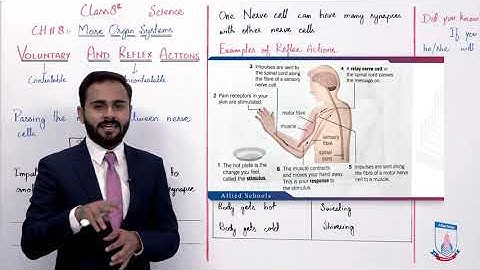 Class 8th Science
CH # 8: More Organ Systems
VOLUNTARY AND REFLEX ACTIONS
Controllable
Uncontrollable
Passing the between nerve
cells
to
synapse
One Nerve cell can have many synapses
with other nerve cells
Examples of Reflex Actions
3 Impulses are sent to
the spinal cord along
the fibre of a sensory
nerve cell
4 A relay nerve cell in
the spinal cord passes
the message on.
2 Pain receptors in your
skin are stimulated.
motor fibre
muscle
sensory
fibre
spinal
cord
1 The hot plate is the
change you feel,
called the stimulus.
6 The muscle contracts
and moves your hand away.
This is your response to
the stimulus
5 Impulses are sent along
the fibre of a motor nerve
cell to a muscle.
Allied Schools
Body gets hot Sweating
Body gets cold Shivering
Did you know
If you
he/she will